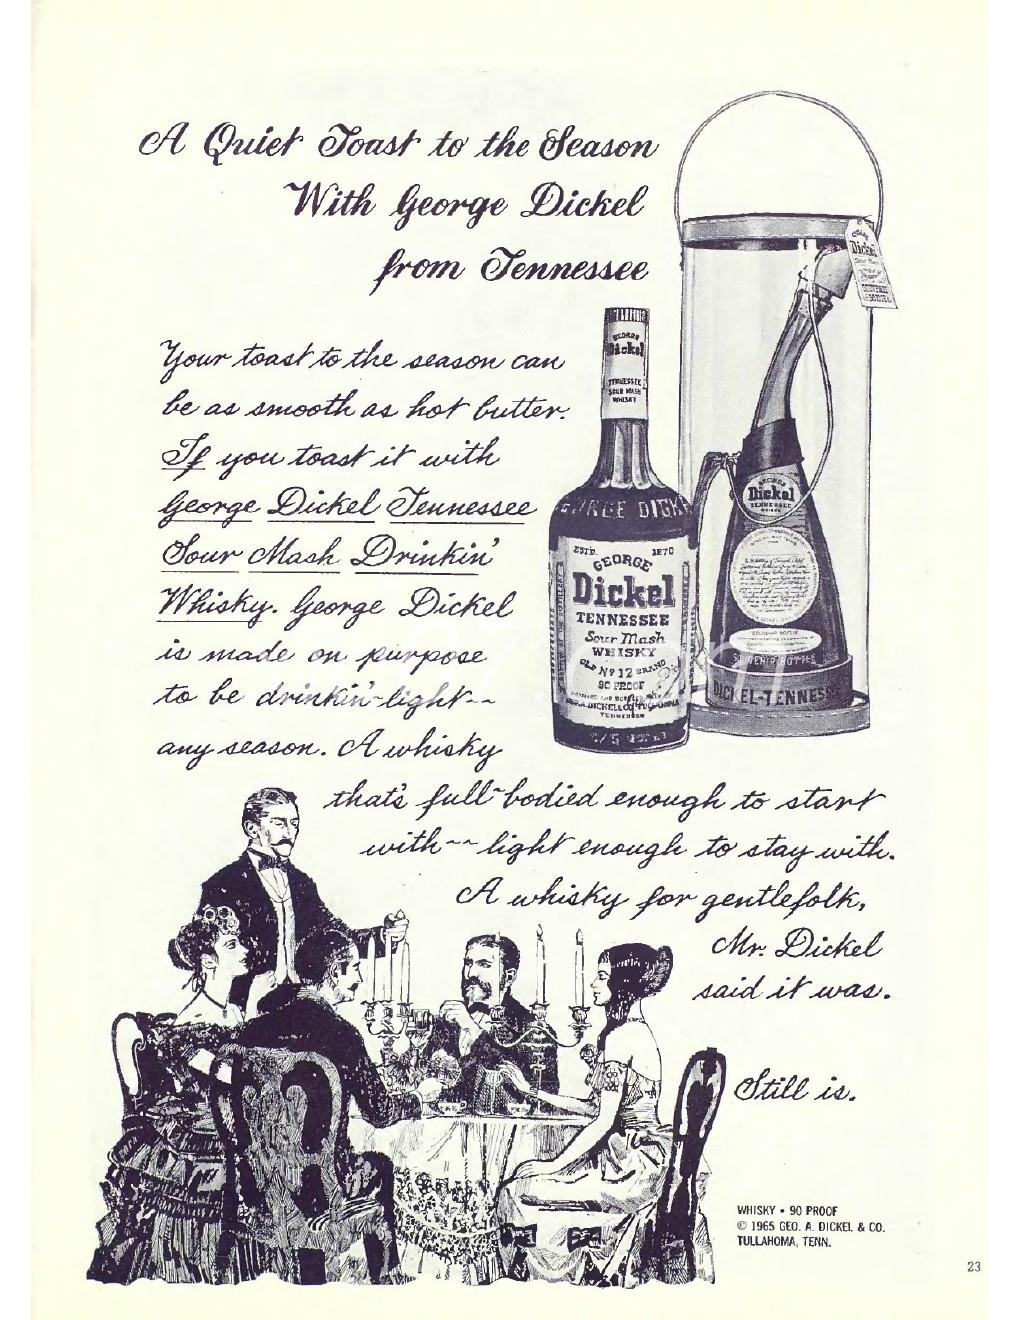 A Quiet Toast to the Season
With George Dickel
from Tennessee
Your toast to the season can
be as smooth as hot butter.
If you toast it with
George Dickel Tennessee
Sour Mash Drinkin'
Whisky. George Dickel
is made on purpose
to be drinkin'-light--
any season. A whisky
that's full-bodied enough to start
with--light enough to stay with.
A whisky for gentlefolk,
Mr. Dickel
said it was.
Still is.
GEORGE
Dickel
TENNESSEE
SOUR MASH
WHISKY
GEORGE DICK
ESTD. 1870
GEORGE
Dickel
TENNESSEE
Sour Mash
WHISKY
OLD No 12 BRAND
90 PROOF
TENNESSEE
4/5 QUART
Dickel
Sour Mash
GEORGE
Dickel
TENNESSEE
WHISKY
SOUVENIR BOTTLE
SOUVENIR BOTTLE
DICKEL-TENNESSEE
WHISKY • 90 PROOF
© 1965 GEO. A. DICKEL & CO.
TULLAHOMA, TENN.
23